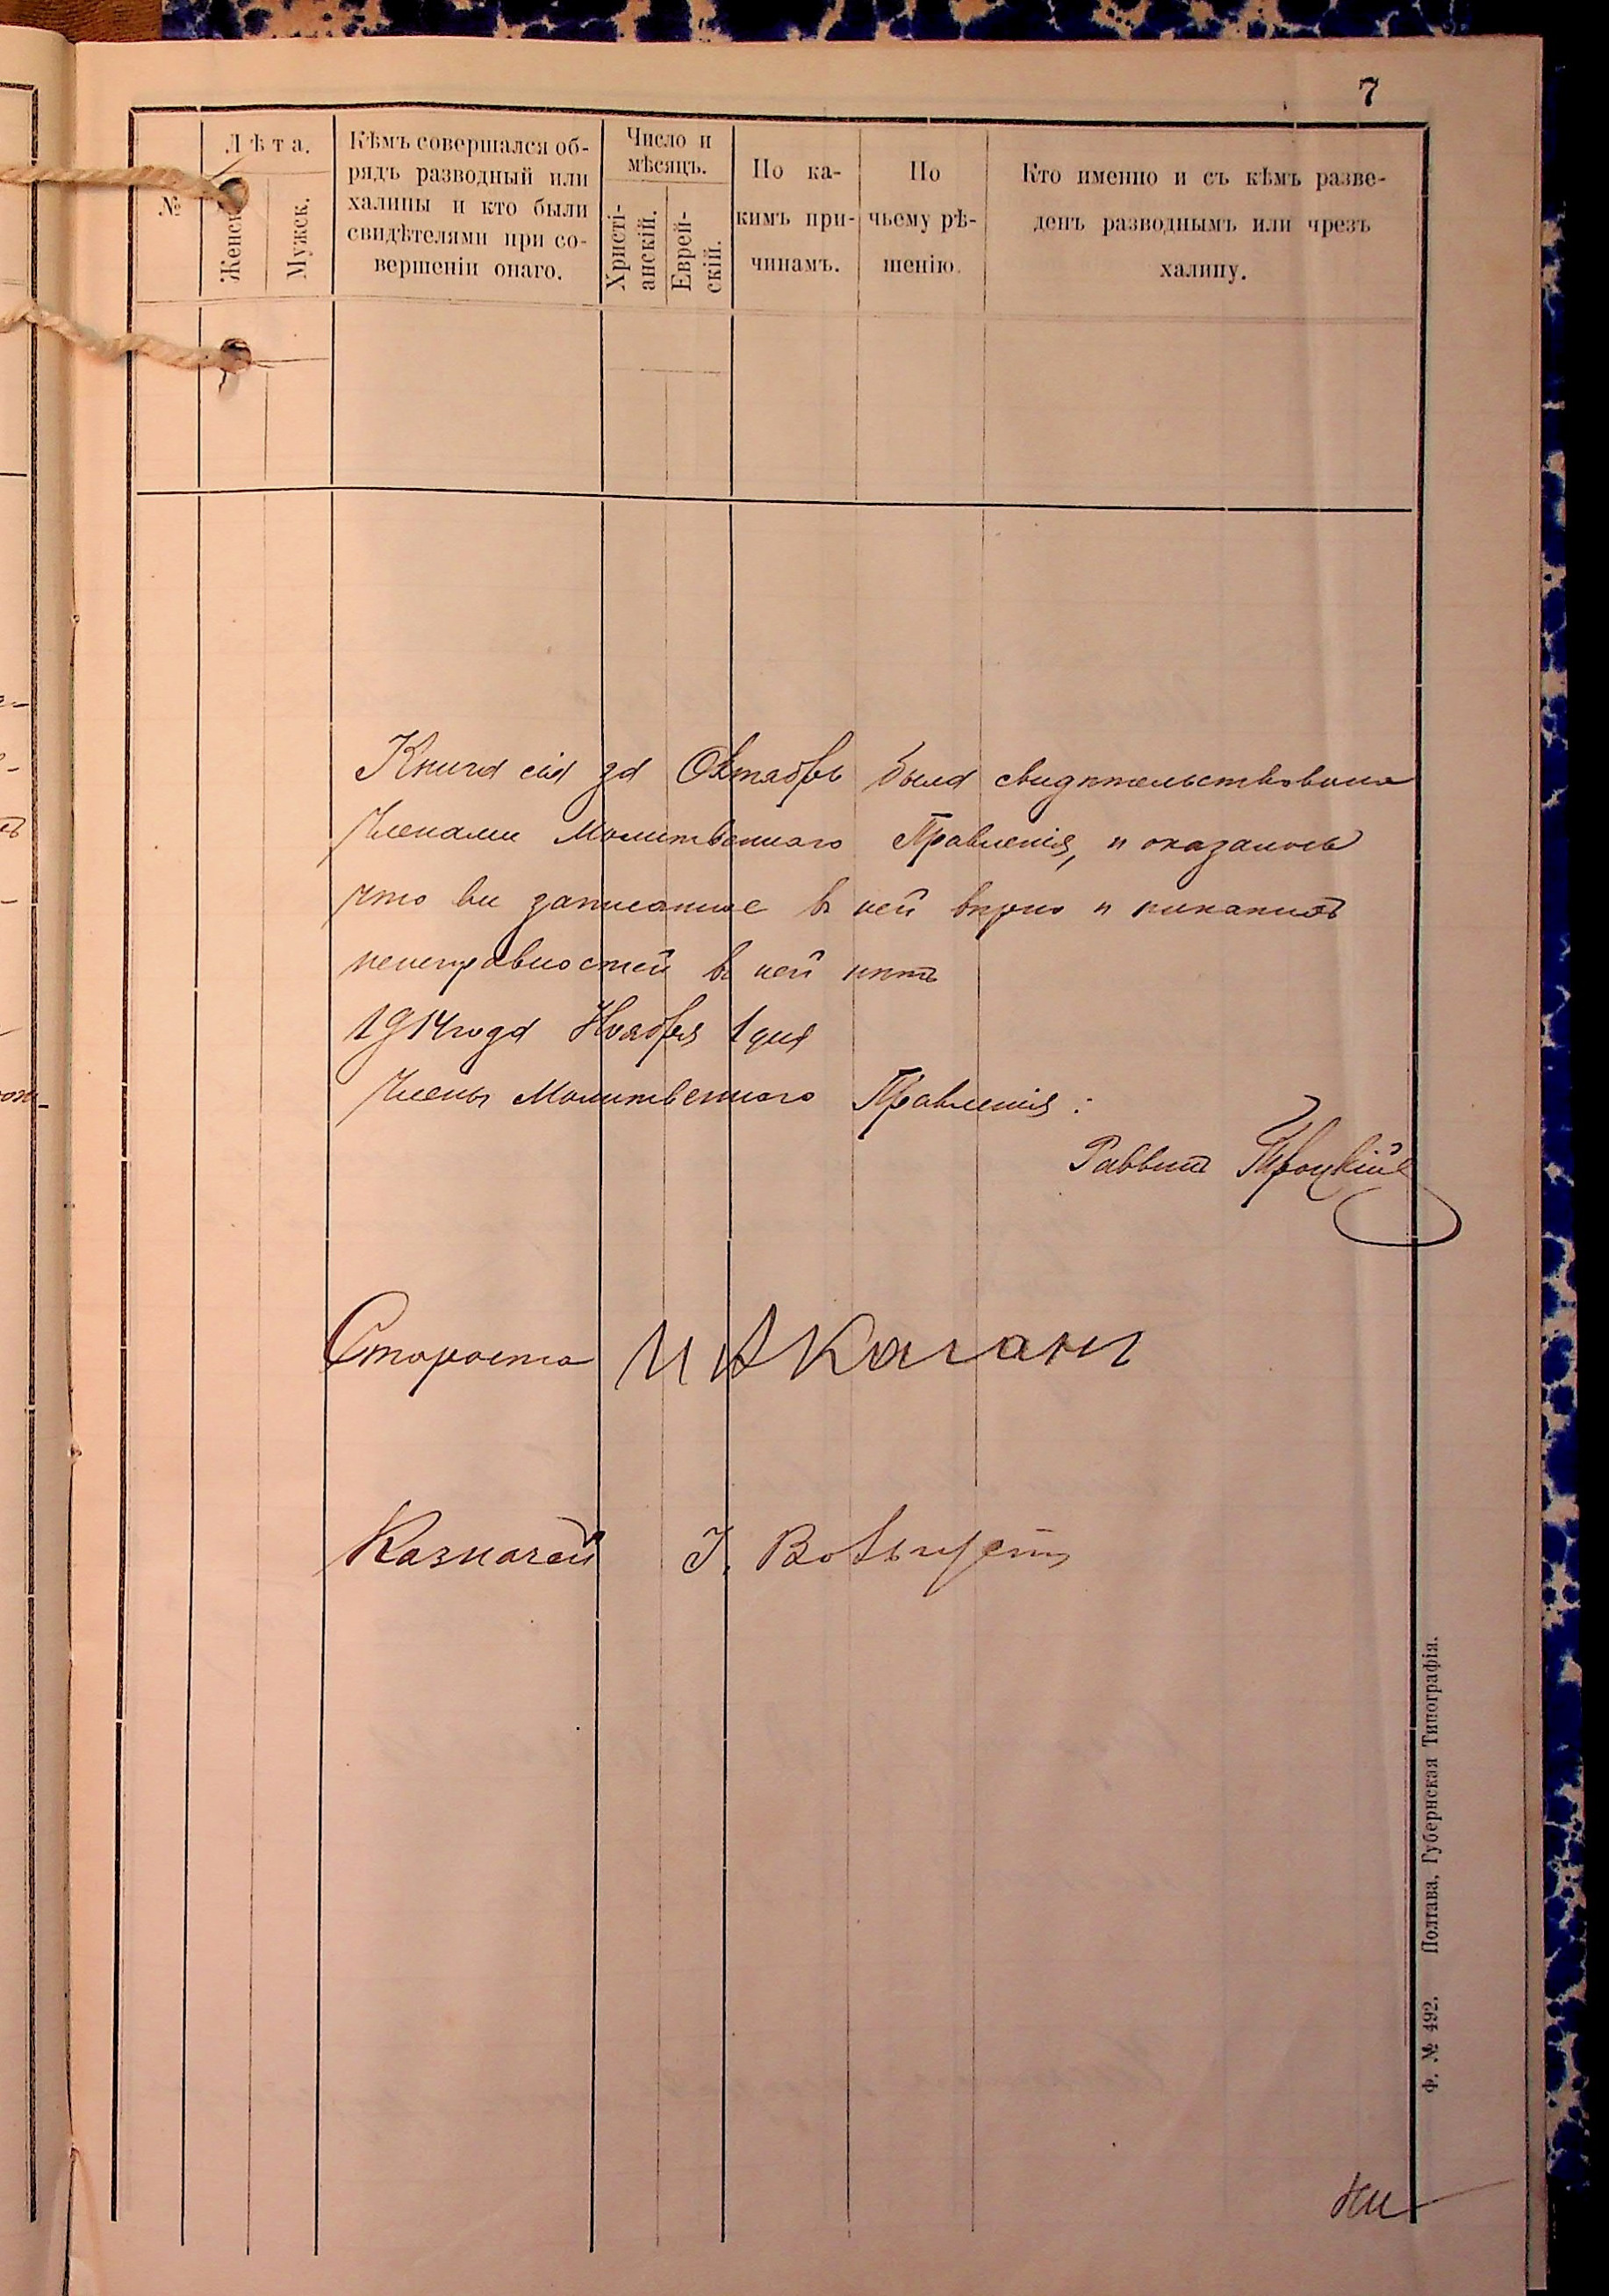 7
№
Лѣта.
Женск.
Мужск.
Кѣмъ совершался об-
рядъ разводный или
халицы и кто были
свидѣтелями при со-
вершеніи онаго.
Число и
мѣсяцъ.
Христі-
анскій.
Еврей-
скій.
По ка-
кимъ при-
чинамъ.
По
чьему рѣ-
шенію.
Кто именно и съ кѣмъ разве-
денъ разводнымъ или чрезъ
халицу.
Книга сія за Октябрь была свидѣтельствована
Членами Молитвеннаго Правленія, и оказалось
что все записанное въ ней вѣрно и никакихъ
неисправностей въ ней нѣтъ
1914 года Ноября 1 дня
Члены Молитвеннаго Правленія:
Раввинъ Троцкій
Староста И А Каганъ
Казначей І.
Ф. № 492. Полтава, Губернская Типографія.